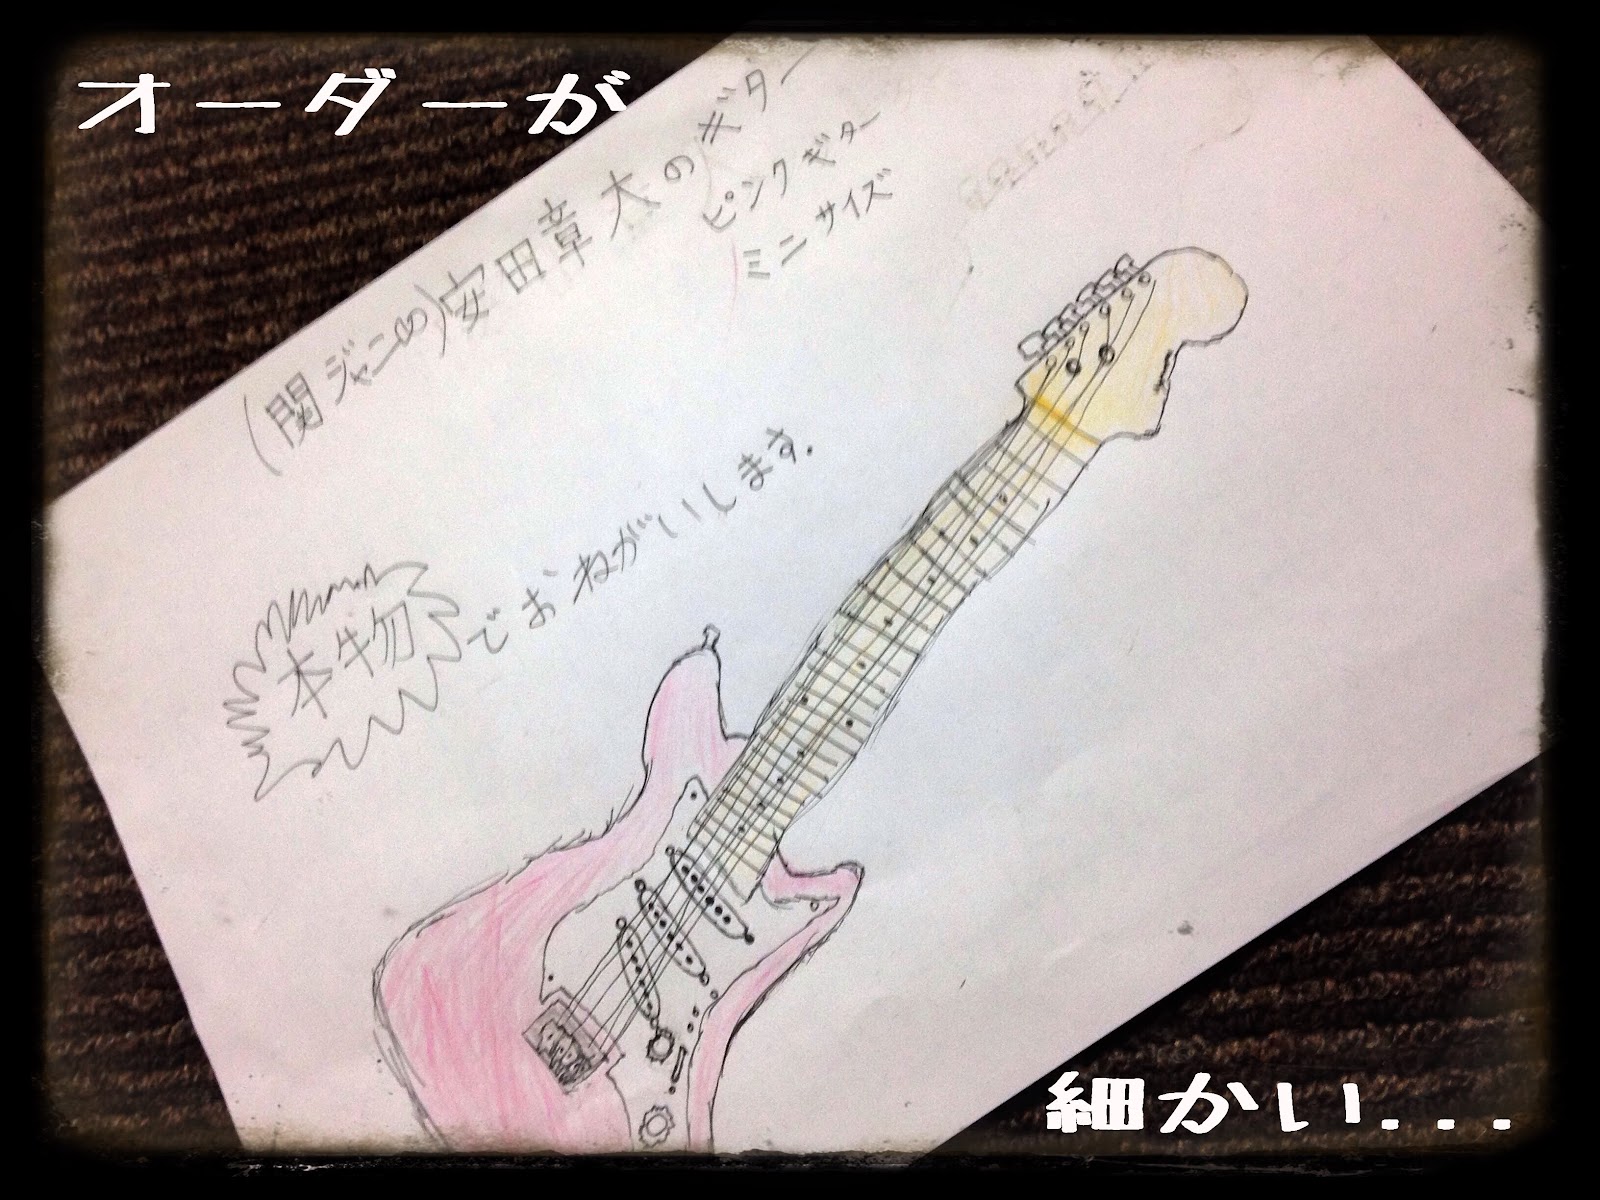 オーダーが
(関ジャニの)安田章大のギター
ピンクギター
ミニサイズ
本物でおねがいします.
細かい...